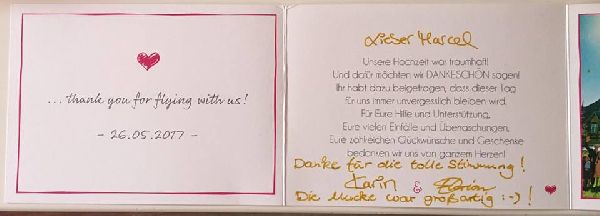 ... thank you for flying with us!
- 26.05.2017 -
Lieber Marcel
Unsere Hochzeit war traumhaft!
Und dafür möchten wir DANKESCHÖN sagen!
Ihr habt dazu beigetragen, dass dieser Tag
für uns immer unvergesslich bleiben wird.
Für Eure Hilfe und Unterstützung,
Eure vielen Einfälle und Überraschungen,
Eure zahlreichen Glückwünsche und Geschenke
bedanken wir uns von ganzem Herzen!
Danke für die tolle Stimmung!
Karin & Florian
Die Mucke war großartig :-) !